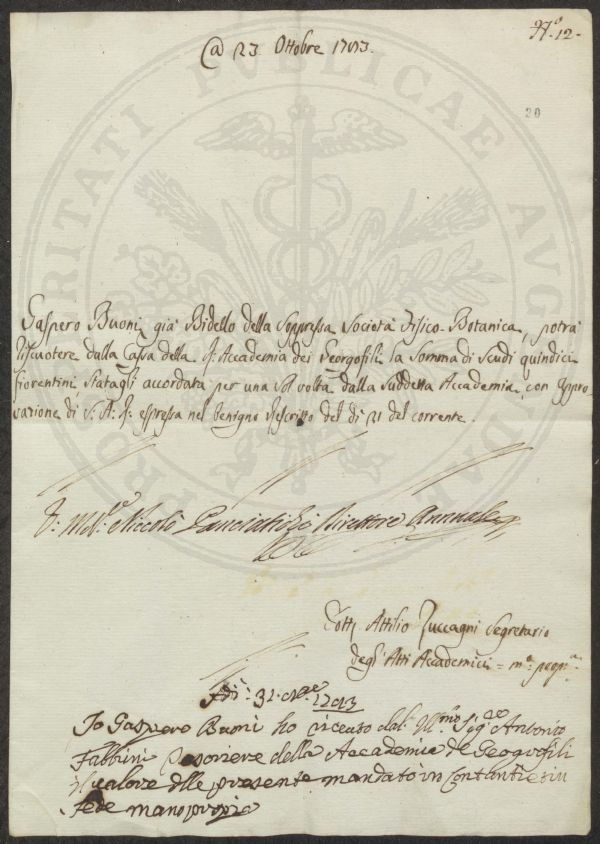 N.º 12.
@ 23 Ottobre 1783.
20
Gaspero Buoni già Bidello della Soppressa Società Fisico-Botanica, potrà
riscuotere dalla Cassa della R. Accademia dei Georgofili la somma di Scudi quindici
fiorentini statagli accordata per una sol volta dalla suddetta Accademia con appro-
vazione di S. A. R. espressa nel benigno Rescritto del dì 21 del corrente.
Niccolò Panciatichi Direttore Annuale
Dott. Attilio Zuccagni Segretario
degl'Atti Accademici = m.º prop.ª
Adì: 31. 8bre 1783
Io Gaspero Buoni ho riceuto dal Ill:mo Sig:re Antonio
Fabbrini Tesoriere della Accademia de Geogrofili
il valore dlle presente mandato in Contanti e in
fede mano propia
PROSPERITATI PUBLICAE AUGENDAE